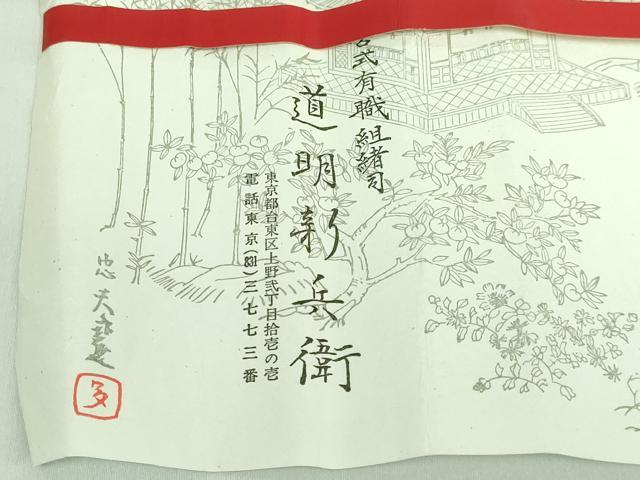 式有職組緒司
道明新兵衛
東京都台東区上野弐丁目拾壱の壱
電話東京(831)三七七三番
忠夫